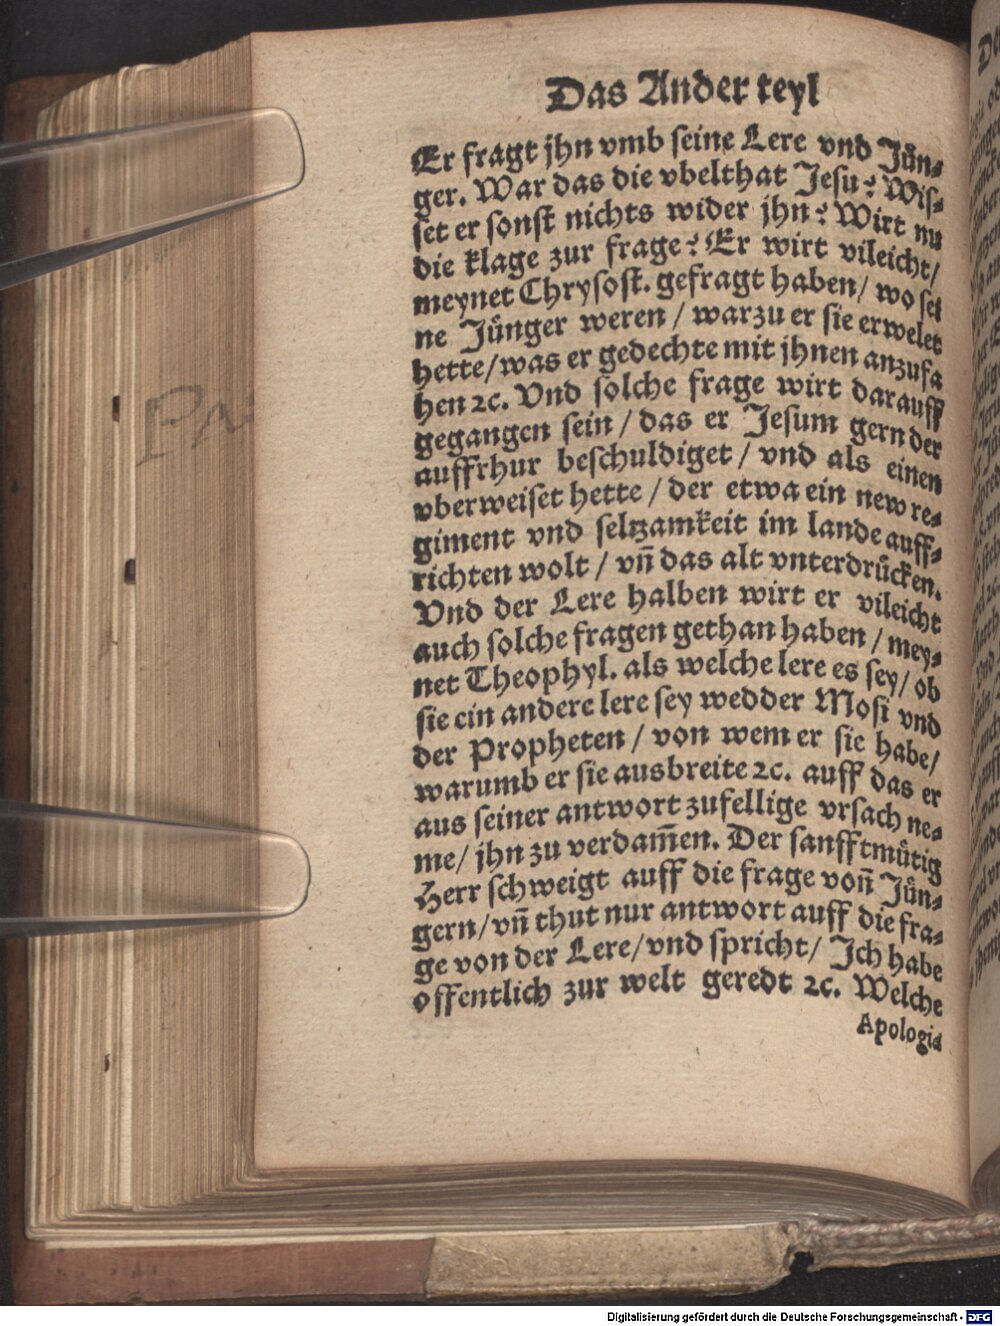 Das Ander teyl
Er fragt jhn vmb seine Lere vnd Jün⸗
ger. War das die vbelthat Jesu? Wis⸗
set er sonst nichts wider jhn? Wirt nu
die klage zur frage? Er wirt vileicht/
meynet Chrysost. gefragt haben/ wo sei
ne Jünger weren / warzu er sie erwelet
hette/was er gedechte mit jhnen anzufa
hen ꝛc. Vnd solche frage wirt darauff
gegangen sein / das er Jesum gern der
auffrhur beschuldiget / vnd als einen
vberweiset hette / der etwa ein new re⸗
giment vnd seltzamkeit im lande auff⸗
richten wolt / vn̄ das alt vnterdrücken.
Vnd der Lere halben wirt er vileicht
auch solche fragen gethan haben / mey⸗
net Theophyl. als welche lere es sey/ ob
sie ein andere lere sey wedder Mosi vnd
der Propheten / von wem er sie habe/
warumb er sie ausbreite ꝛc. auff das er
aus seiner antwort zufellige vrsach ne⸗
me/ jhn zu verdam̄en. Der sanfftmütig
Herr schweigt auff die frage von̄ Jün⸗
gern/vn̄ thut nur antwort auff die fra⸗
ge von der Lere/vnd spricht/ Ich habe
offentlich zur welt geredt ꝛc. Welche
Apologia
Digitalisierung gefördert durch die Deutsche Forschungsgemeinschaft - DFG